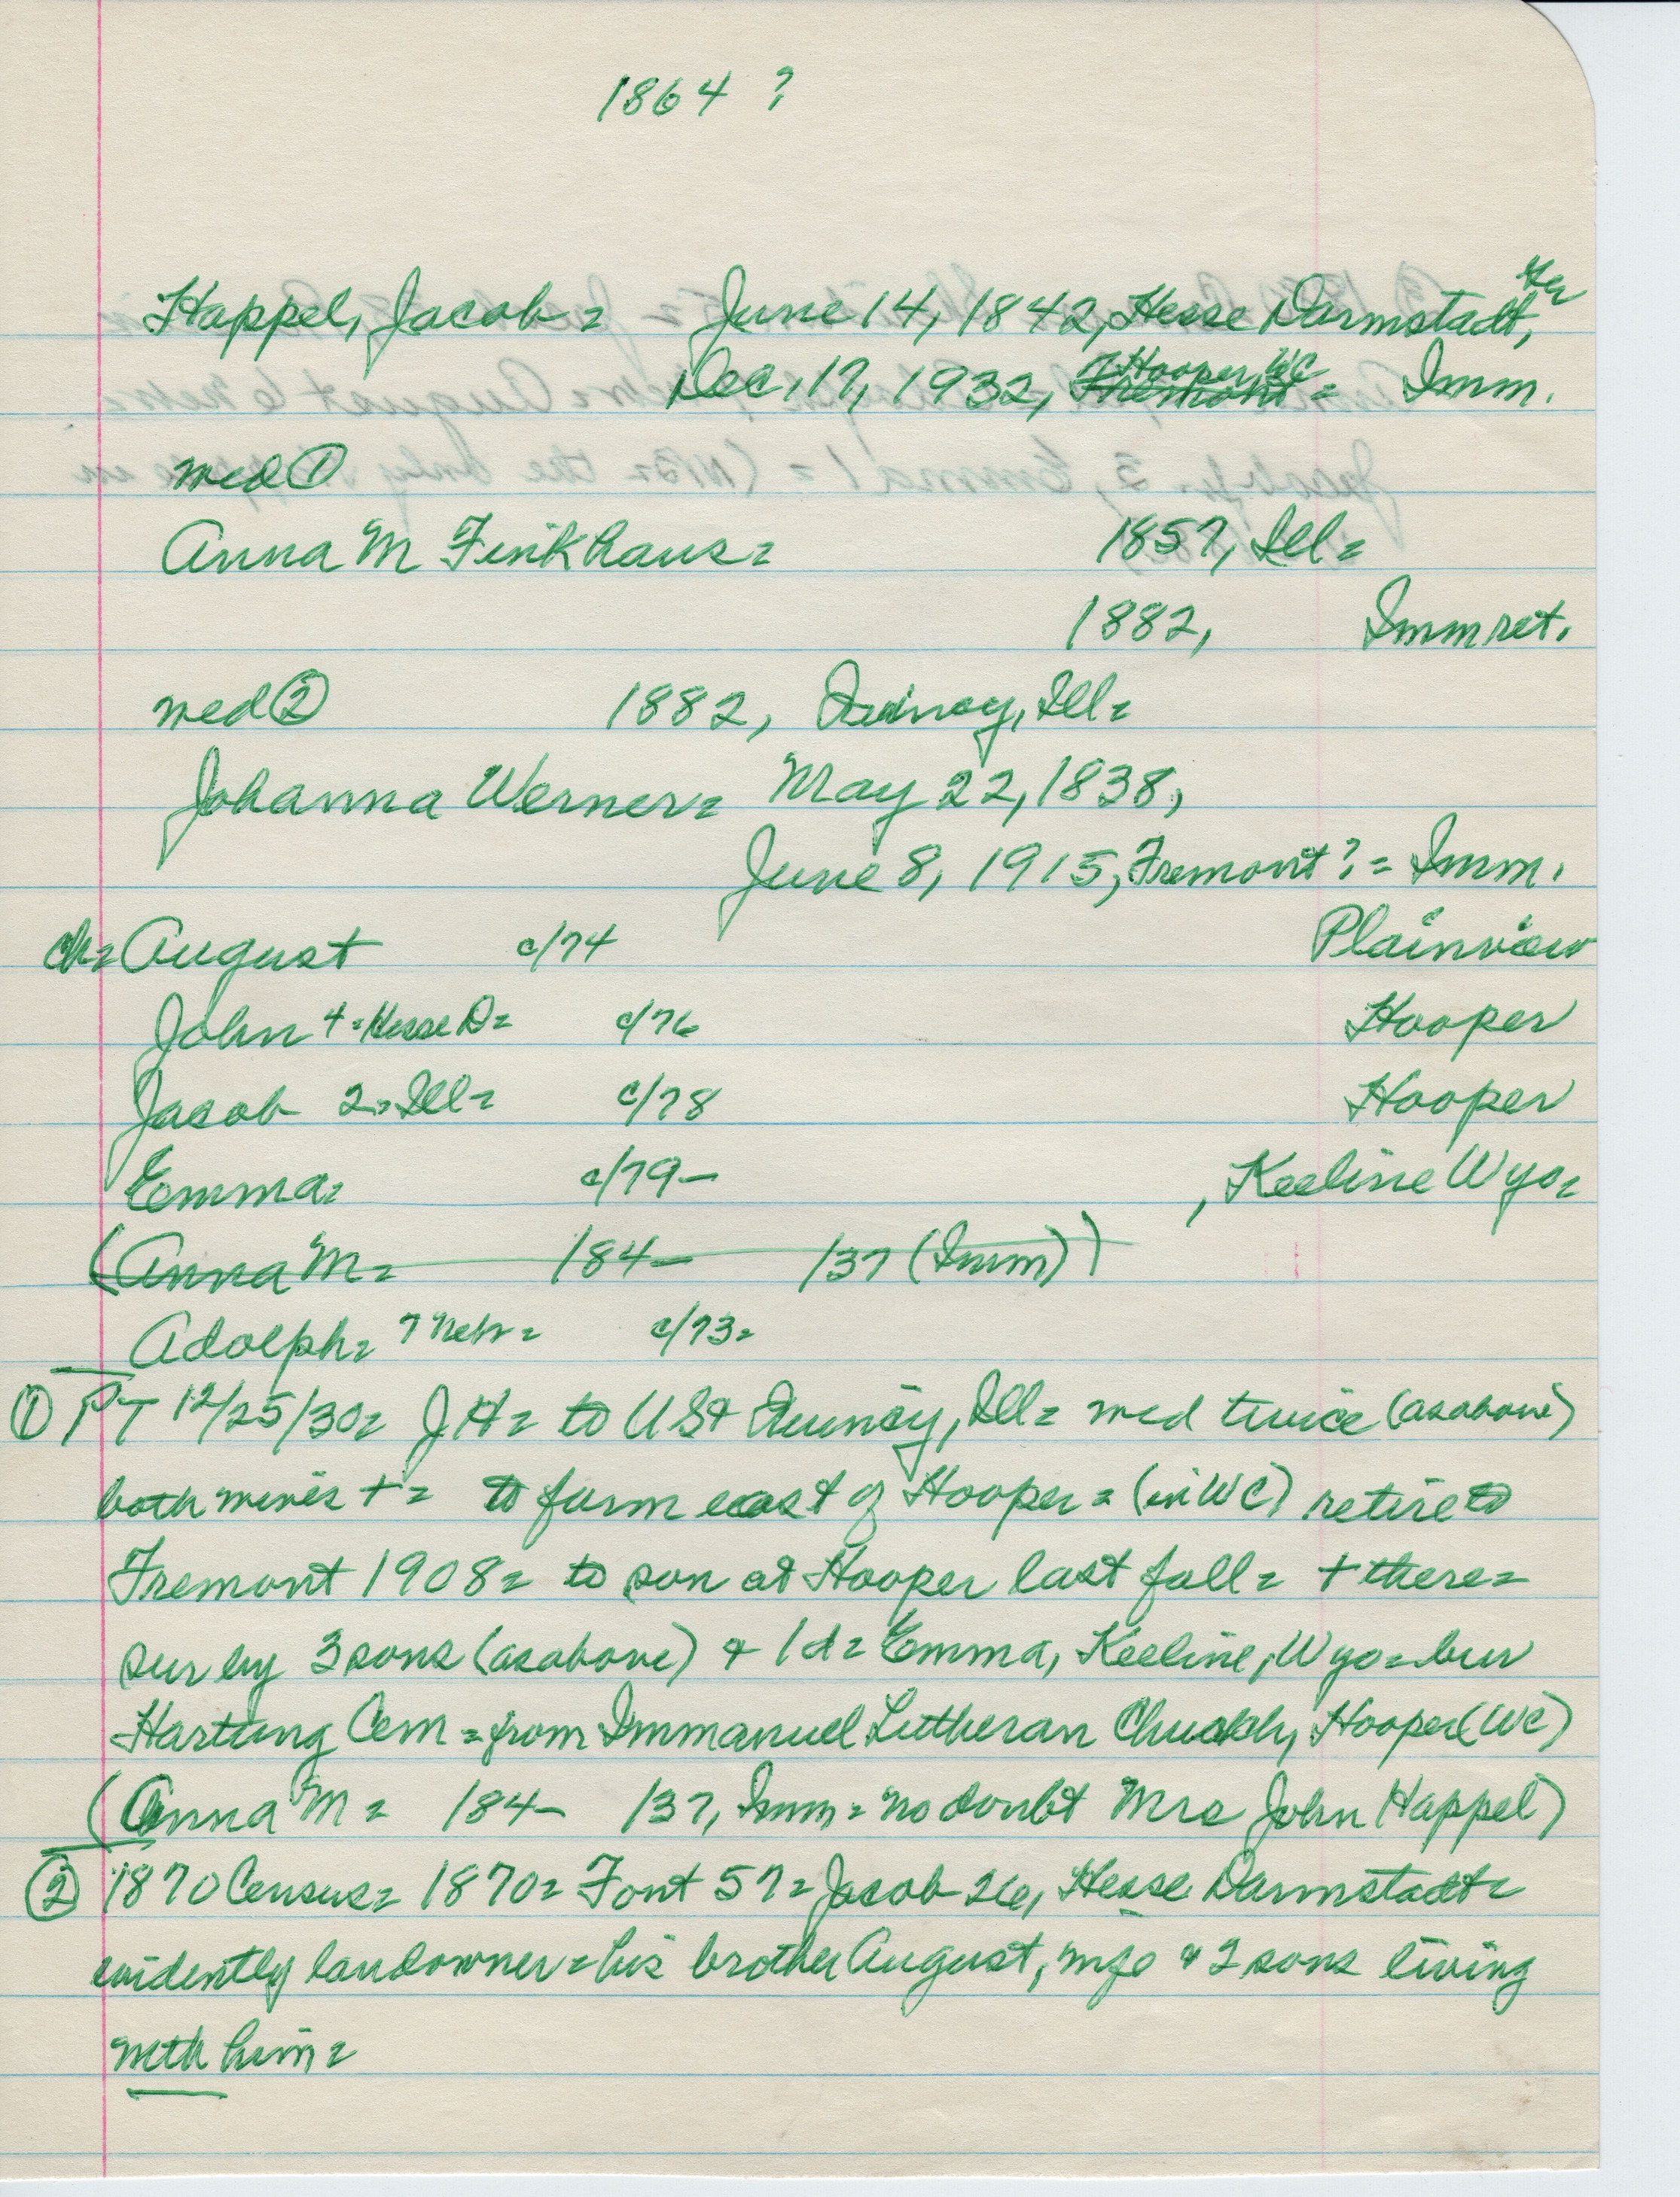 1864 ?
Happel, Jacob = June 14, 1842, Hesse Darmstadt, Ger
Dec, 17, 1932, Fremont Hooper, WC = Imm.
med ①
Anna M Finkhaus = 1857, Ill =
1882, Imm ret.
med ② 1882, Quincy, Ill =
Johanna Werner = May 22, 1838,
June 8, 1915, Fremont? = Imm.
ch = August c/74 Plainview
John 4 = Hesse D = c/76 Hooper
Jacob 2 = Ill = c/78 Hooper
Emma = c/79 - , Keeline Wyo =
(Anna M = 184- /37 (Imm))
Adolph = 7 Neb = c/73 =
① PT 12/25/30 = J H = to US & Quincy, Ill = med twice (as above)
both + = to farm east of Hooper = (in WC) retire to
Fremont 1908 = to son at Hooper last fall = + there =
sur by 3 sons (as above) & 1 d = Emma, Keeline, Wyo = bur
Hartung Cem = from Immanuel Lutheran Church, Hooper (WC)
(Anna M = 184- /37, Imm = no doubt Mrs John Happel)
② 1870 Census = 1870 = Font 57 = Jacob 26, Hesse Darmstadt =
evidently landowner = his brother August, wife & 2 sons living
with him =